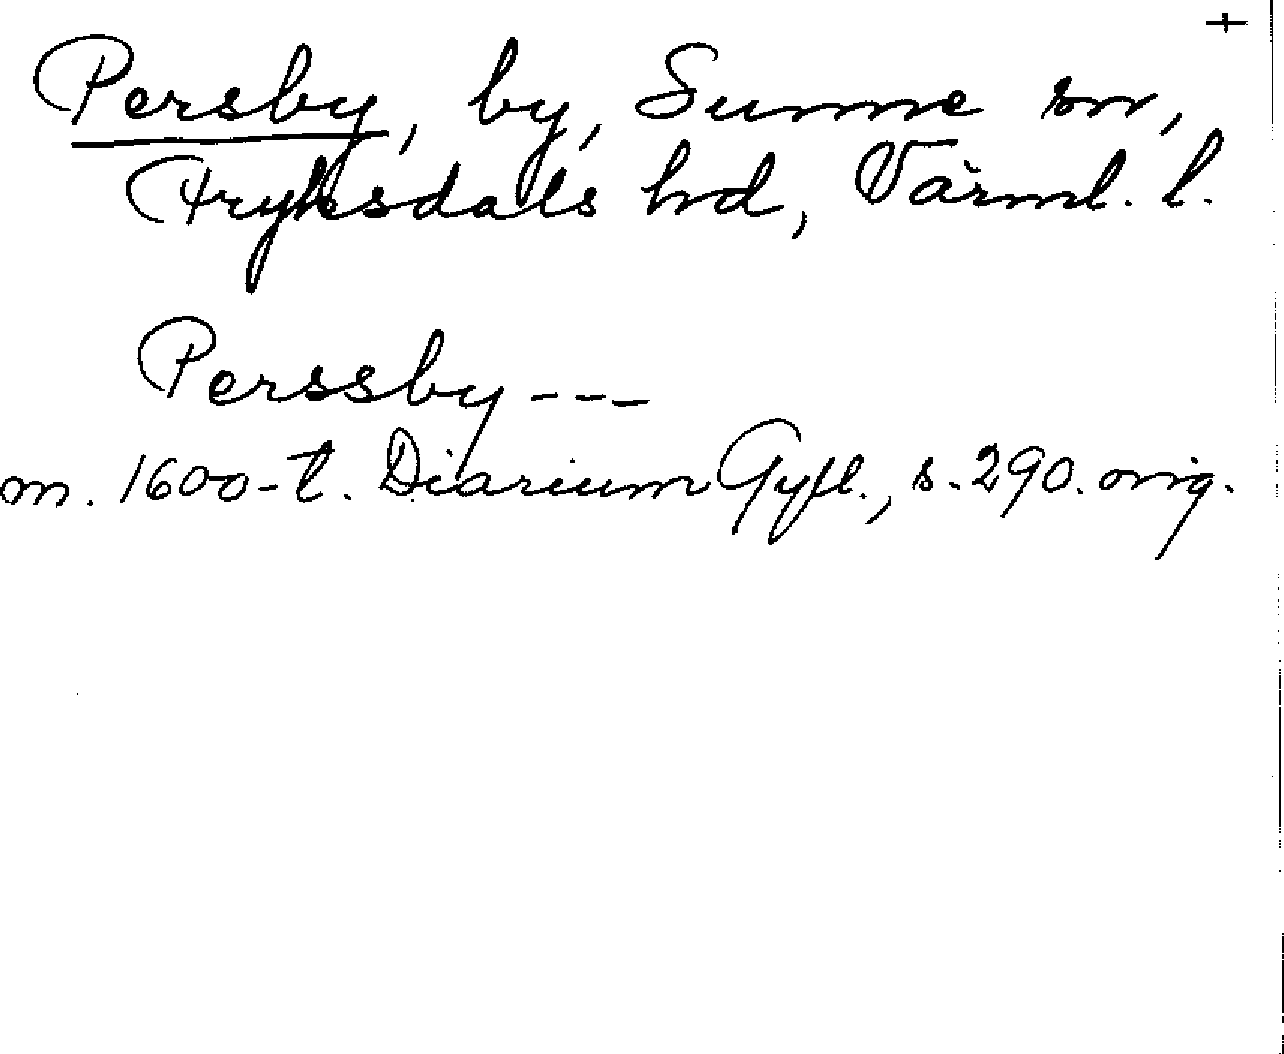 +
Persby, by, Sunne sn,
Fryksdals hd, Värml. l.
Perssby ---
m. 1600-t. Diarium Gyll., s. 290. orig.